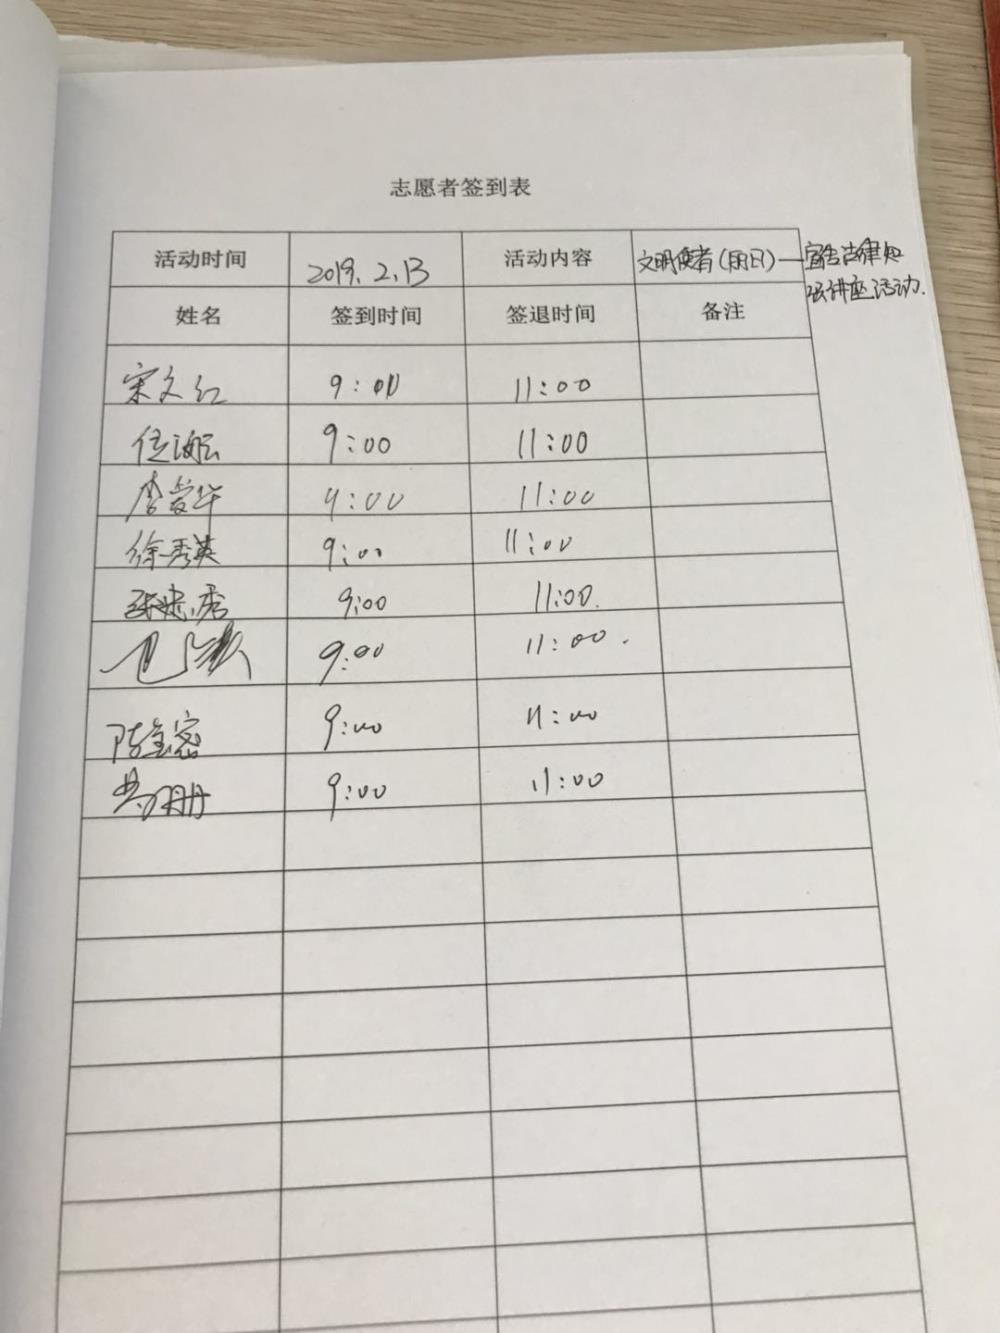 志愿者签到表
活动时间 2019.2.13 活动内容 文明使者(月日)—宣传法律知
识讲座活动.
姓名 签到时间 签退时间 备注
宋文红 9:00 11:00
9:00 11:00
李爱华 9:00 11:00
徐秀英 9:00 11:00
张忠秀 9:00 11:00.
9:00 11:00.
陈宝密 9:00 11:00
9:00 11:00